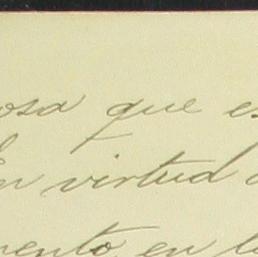 osa que es
En virtud d
mento en la